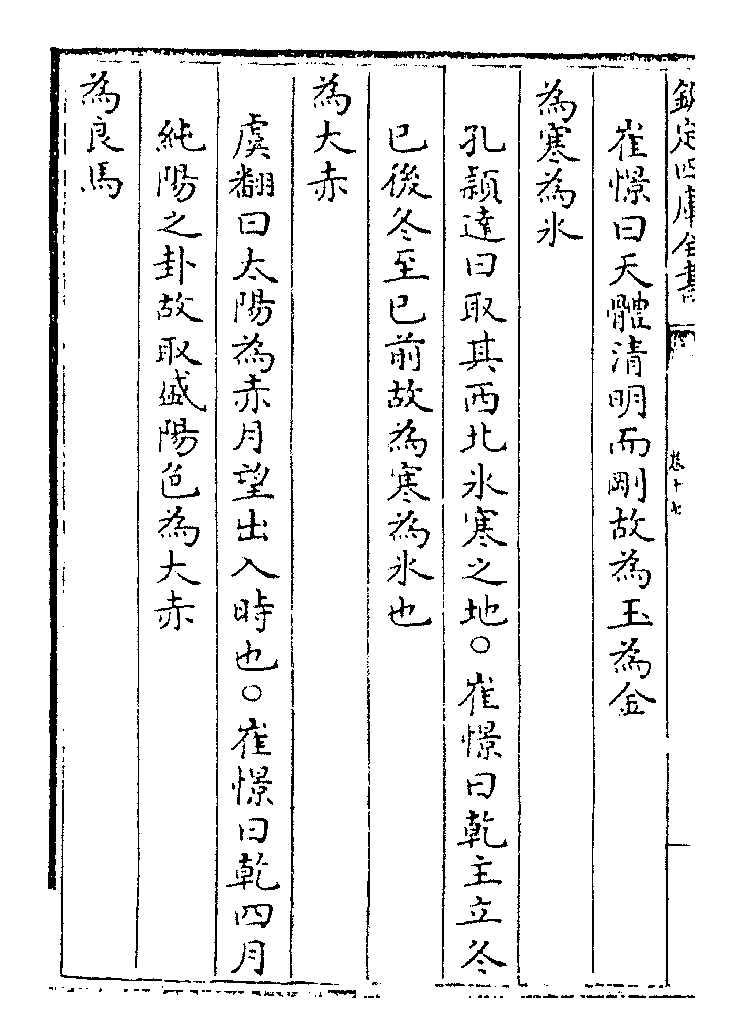 欽定四庫全書
卷十七
崔憬曰天體清明而剛故為玉為金
為寒為氷
孔穎達曰取其西北氷寒之地○崔憬曰乾主立冬
已後冬至已前故為寒為氷也
為大赤
虞翻曰太陽為赤月望出入時也○崔憬曰乾四月
純陽之卦故取盛陽色為大赤
為良馬